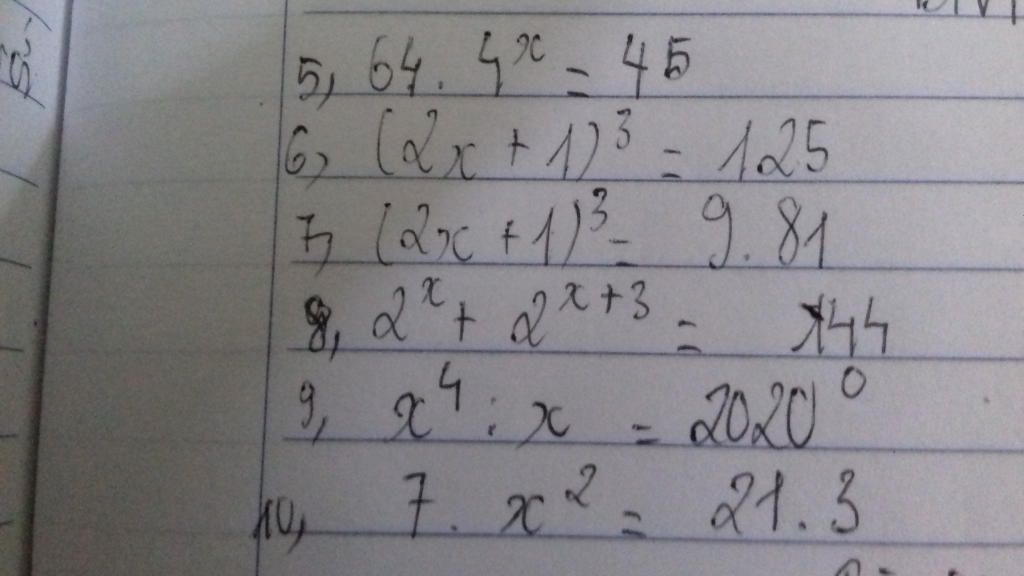 5, 64 . 4^x = 45
6, (2x + 1)^3 = 125
7, (2x + 1)^3 = 9 . 81
8, 2^x + 2^{x+3} = 144
9, x^4 : x = 2020^0
10, 7 . x^2 = 21 . 3